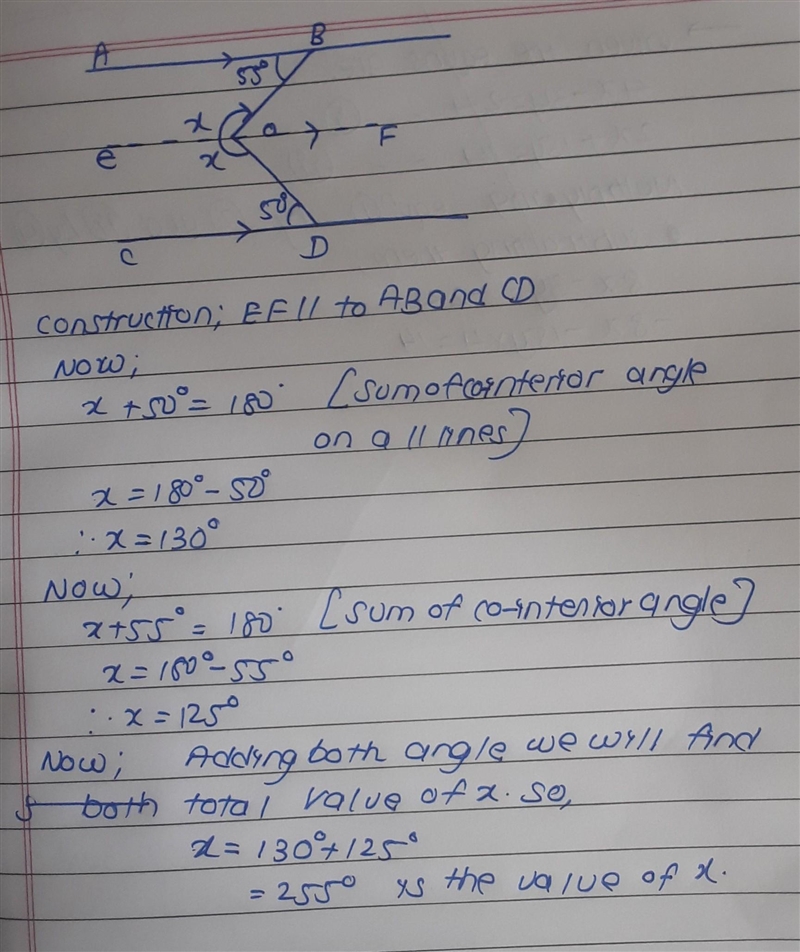 A B
55°
x
e o F
x
50°
C D
construction; EF // to AB and CD
Now;
x + 50° = 180° [sum of cointerior angle
on a // lines]
x = 180° - 50°
∴ x = 130°
Now;
x + 55° = 180° [sum of co-interior angle]
x = 180° - 55°
∴ x = 125°
Now; Adding both angle we will find
both total value of x. so,
x = 130° + 125°
= 255° is the value of x.